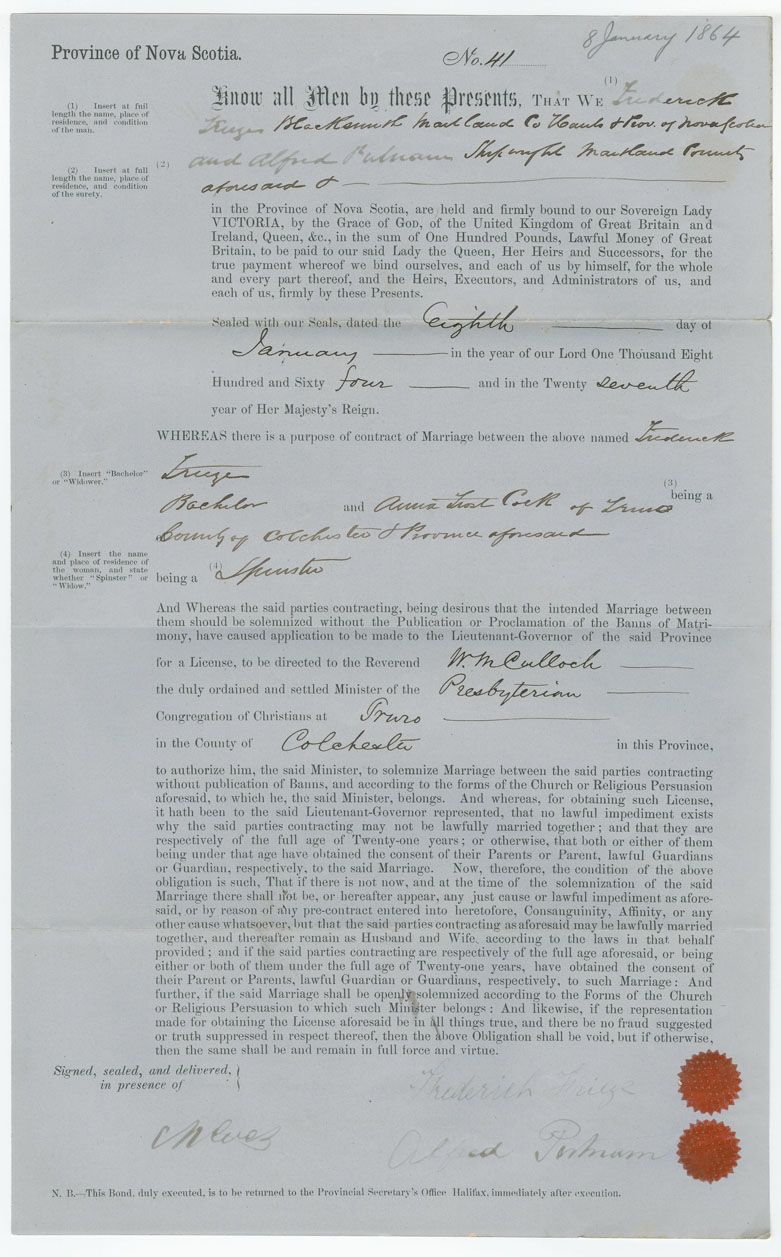 8 January 1864
Province of Nova Scotia.
No. 41
(1)
Know all Men by these Presents, THAT WE Frederick
(1) Insert at full length the name, place of residence, and condition of the man.
Blacksmith Maitland Co Hants & Prov. of Nova Scotia
(2)
and Alfred Putnam Shipwright Maitland County
(2) Insert at full length the name, place of residence, and condition of the surety.
aforesaid &
in the Province of Nova Scotia, are held and firmly bound to our Sovereign Lady
VICTORIA, by the Grace of GOD, of the United Kingdom of Great Britain and
Ireland, Queen, &c., in the sum of One Hundred Pounds, Lawful Money of Great
Britain, to be paid to our said Lady the Queen, Her Heirs and Successors, for the
true payment whereof we bind ourselves, and each of us by himself, for the whole
and every part thereof, and the Heirs, Executors, and Administrators of us, and
each of us, firmly by these Presents.
Sealed with our Seals, dated the Eighth day of
January in the year of our Lord One Thousand Eight
Hundred and Sixty four and in the Twenty seventh
year of Her Majesty's Reign.
WHEREAS there is a purpose of contract of Marriage between the above named Frederick
(3) Insert "Bachelor" or "Widower."
(3)
being a
Bachelor and Anna Frost Cock of Truro
County of Colchester & Province aforesaid
(4) Insert the name and place of residence of the woman, and state whether "Spinster" or "Widow."
being a (4) Spinster
And Whereas the said parties contracting, being desirous that the intended Marriage between
them should be solemnized without the Publication or Proclamation of the Banns of Matri-
mony, have caused application to be made to the Lieutenant-Governor of the said Province
for a License, to be directed to the Reverend W. McCulloch
the duly ordained and settled Minister of the Presbyterian
Congregation of Christians at Truro
in the County of Colchester in this Province,
to authorize him, the said Minister, to solemnize Marriage between the said parties contracting
without publication of Banns, and according to the forms of the Church or Religious Persuasion
aforesaid, to which he, the said Minister, belongs. And whereas, for obtaining such License,
it hath been to the said Lieutenant-Governor represented, that no lawful impediment exists
why the said parties contracting may not be lawfully married together; and that they are
respectively of the full age of Twenty-one years; or otherwise, that both or either of them
being under that age have obtained the consent of their Parents or Parent, lawful Guardians
or Guardian, respectively, to the said Marriage. Now, therefore, the condition of the above
obligation is such, That if there is not now, and at the time of the solemnization of the said
Marriage there shall not be, or hereafter appear, any just cause or lawful impediment as afore-
said, or by reason of any pre-contract entered into heretofore, Consanguinity, Affinity, or any
other cause whatsoever, but that the said parties contracting as aforesaid may be lawfully married
together, and thereafter remain as Husband and Wife, according to the laws in that behalf
provided; and if the said parties contracting are respectively of the full age aforesaid, or being
either or both of them under the full age of Twenty-one years, have obtained the consent of
their Parent or Parents, lawful Guardian or Guardians, respectively, to such Marriage: And
further, if the said Marriage shall be openly solemnized according to the Forms of the Church
or Religious Persuasion to which such Minister belongs: And likewise, if the representation
made for obtaining the License aforesaid be in all things true, and there be no fraud suggested
or truth suppressed in respect thereof, then the above Obligation shall be void, but if otherwise,
then the same shall be and remain in full force and virtue.
Signed, sealed, and delivered,
in presence of
Frederick
Alfred Putnam
N. B.—This Bond, duly executed, is to be returned to the Provincial Secretary's Office Halifax, immediately after execution.